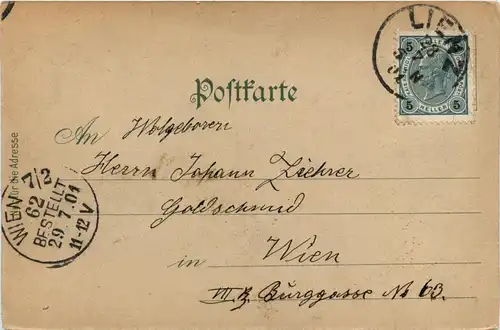 LIEN
5 5
HELLER
5 5
Postkarte
An Wolgeboren
Herrn Johann Ziehrer
Goldschmid
in Wien
VII/2 Burggasse No 63.
Nur für die Adresse
WIEN 7/2
62
BESTELLT
29.7.01
11-12V